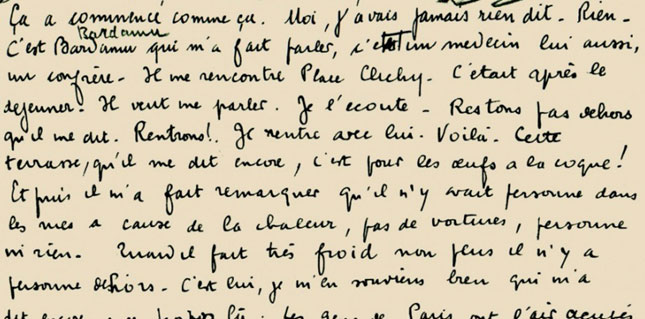 Ça a commencé comme ça. Moi, j'avais jamais rien dit. Rien.
Bardamu
C'est Bardamu qui m'a fait parler, c'était un medecin lui aussi,
un confrère. Il me rencontre Place Clichy. C'était après le
dejeuner. Il veut me parler. Je l'écoute. Restons pas dehors
qu'il me dit. Rentrons!. Je rentre avec lui. Voilà. Cette
terrasse, qu'il me dit encore, c'est pour les œufs a la coque!
Et puis il m'a fait remarquer qu'il n'y avait personne dans
les rues a cause de la chaleur, pas de voitures, personne
ni rien. Quand il fait très froid non plus il n'y a
personne dehors. C'est lui, je m'en souviens bien qui m'a
dit encore Les gens de Paris ont l'air